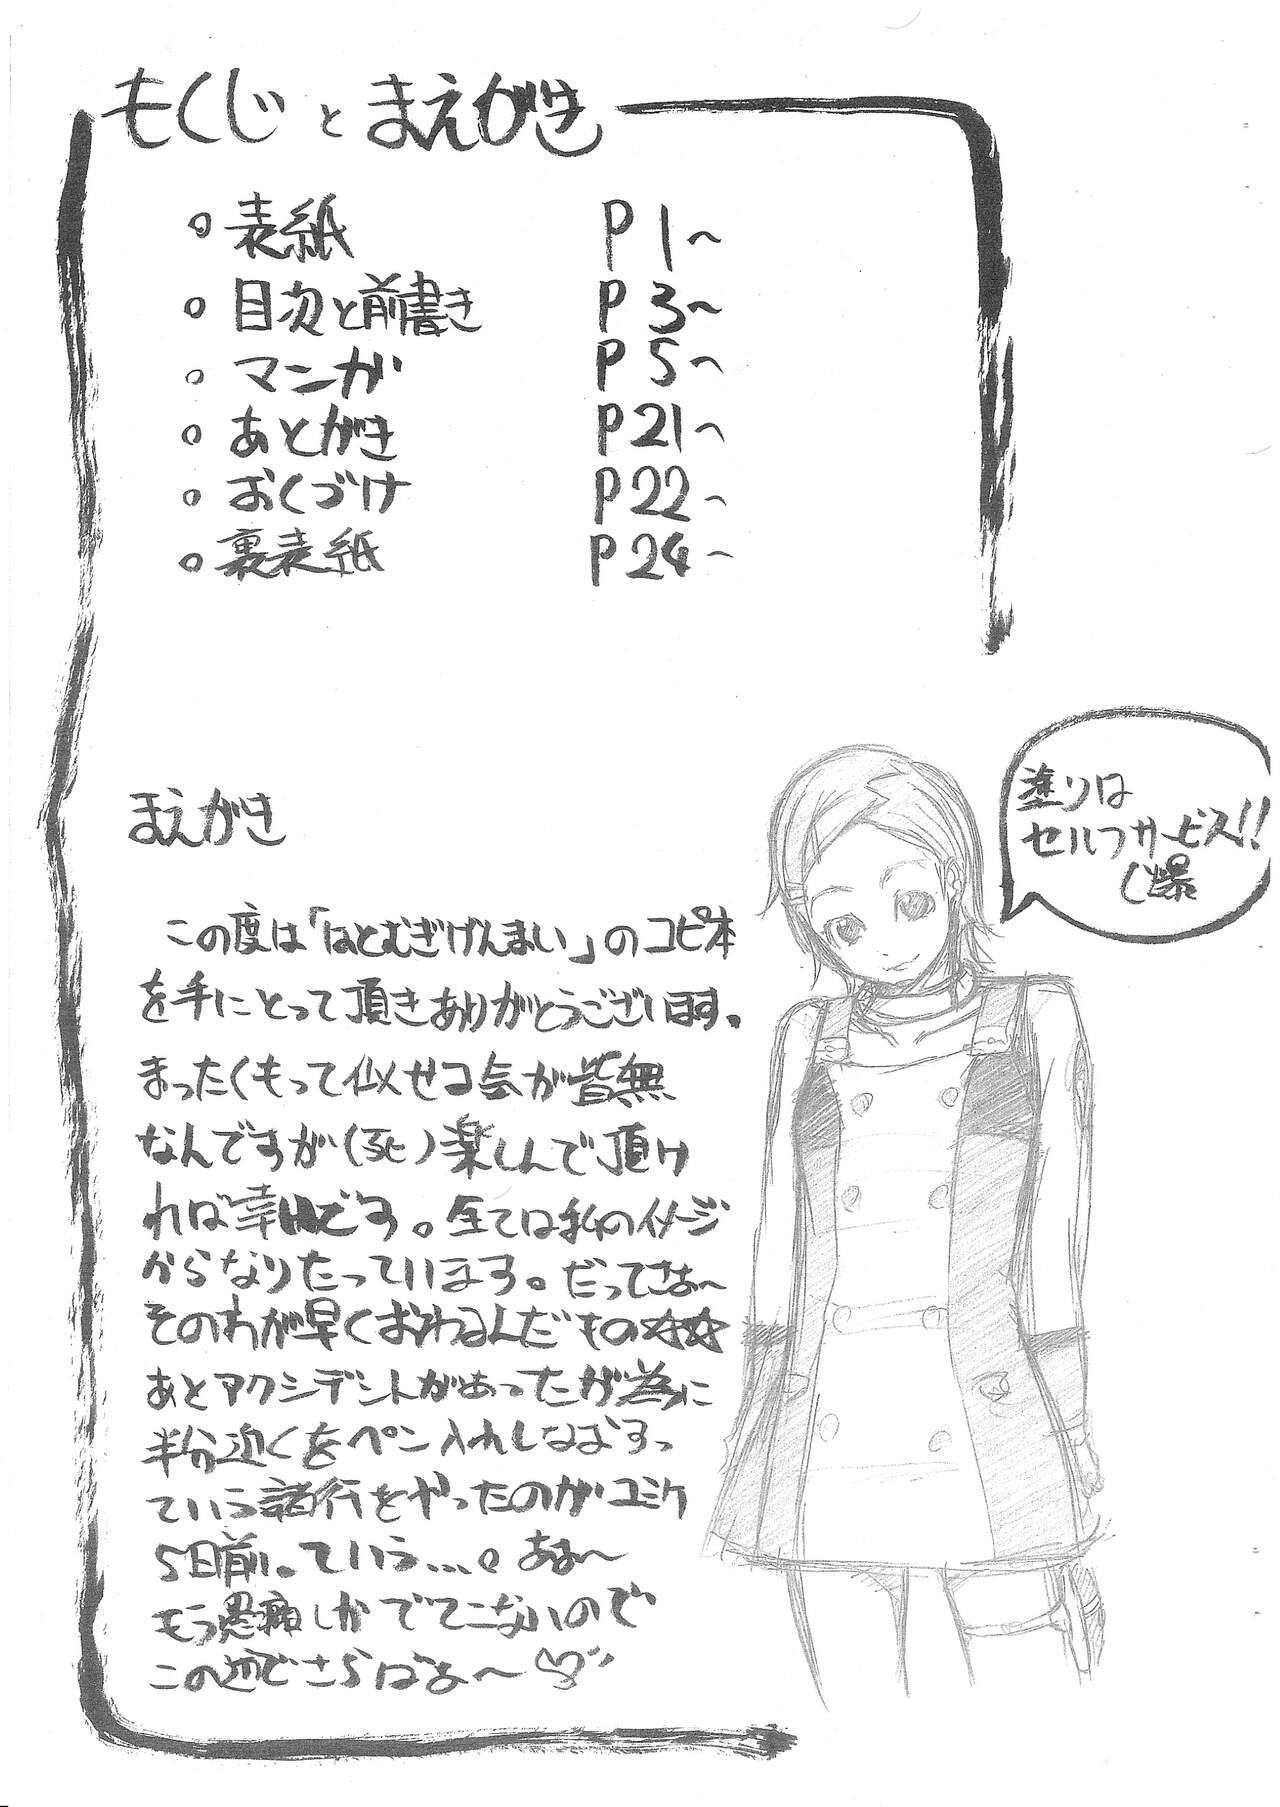 もくじとまえがき
○ 表紙 P1~
○ 目次と前書き P3~
○ マンガ P5~
○ あとがき P21~
○ おくづけ P22~
○ 裏表紙 P24~
塗りは
セルフサービス!!
(爆
まえがき
この度は「はとむぎげんまい」のコピ本
を手にとって頂きありがとうございます。
まったくもって似せる気が皆無
なんですが(死)楽しんで頂け
れば幸いです。全ては私のイメージ
からなりたっています。だってさぁ~
そのわが早くおわるんだもの☆☆
あとアクシデントがあったが為に
半分近くをペン入れしなおすっ
ていう諸行をやったのがコミケ
5日前。ていう...。あぁ~
もう愚痴しかでてこないので
この辺でさらばぁ~